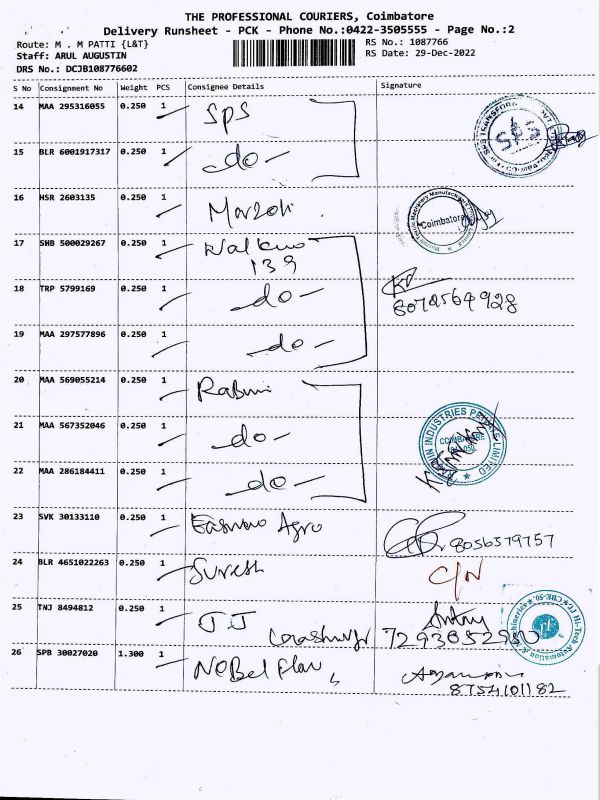 THE PROFESSIONAL COURIERS, Coimbatore
Delivery Runsheet - PCK - Phone No.:0422-3505555 - Page No.:2
Route: M . M PATTI {L&T}
RS No.: 1087766
Staff: ARUL AUGUSTIN
RS Date: 29-Dec-2022
DRS No.: DCJB108776602
S No Consignment No Weight PCS Consignee Details Signature
14 MAA 295316055 0.250 1 SPS
15 BLR 6001917317 0.250 1 -do-
16 HSR 2603135 0.250 1 Marzoli
Coimbatore
17 SHB 500029267 0.250 1
139
18 TRP 5799169 0.250 1 -do-
8072564928
19 MAA 297577896 0.250 1 -do-
20 MAA 569055214 0.250 1
21 MAA 567352046 0.250 1 -do-
INDUSTRIES PRIVATE LIMITED
COIMBATORE
22 MAA 286184411 0.250 1 -do-
23 SVK 30133110 0.250 1 Agro
8056579757
24 BLR 4651022263 0.250 1 Suresh
C/N
25 TNJ 8494812 0.250 1 JJ
Hi-Tech Automation & Machineries
CBE-50
26 SPB 30027020 1.300 1 NOBel
8754101182